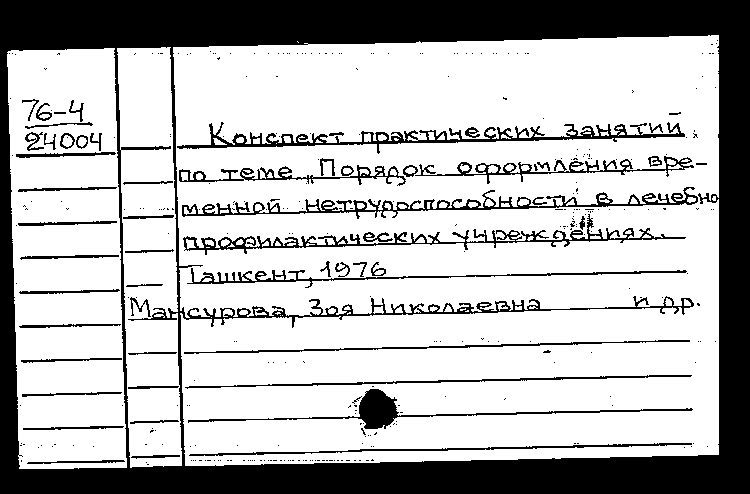 76-4
24004
Конспект практических занятий
по теме „Порядок оформления вре-
менной нетрудоспособности в лечебно
профилактических учреждениях.
Ташкент, 1976
Мансурова, Зоя Николаевна и др.